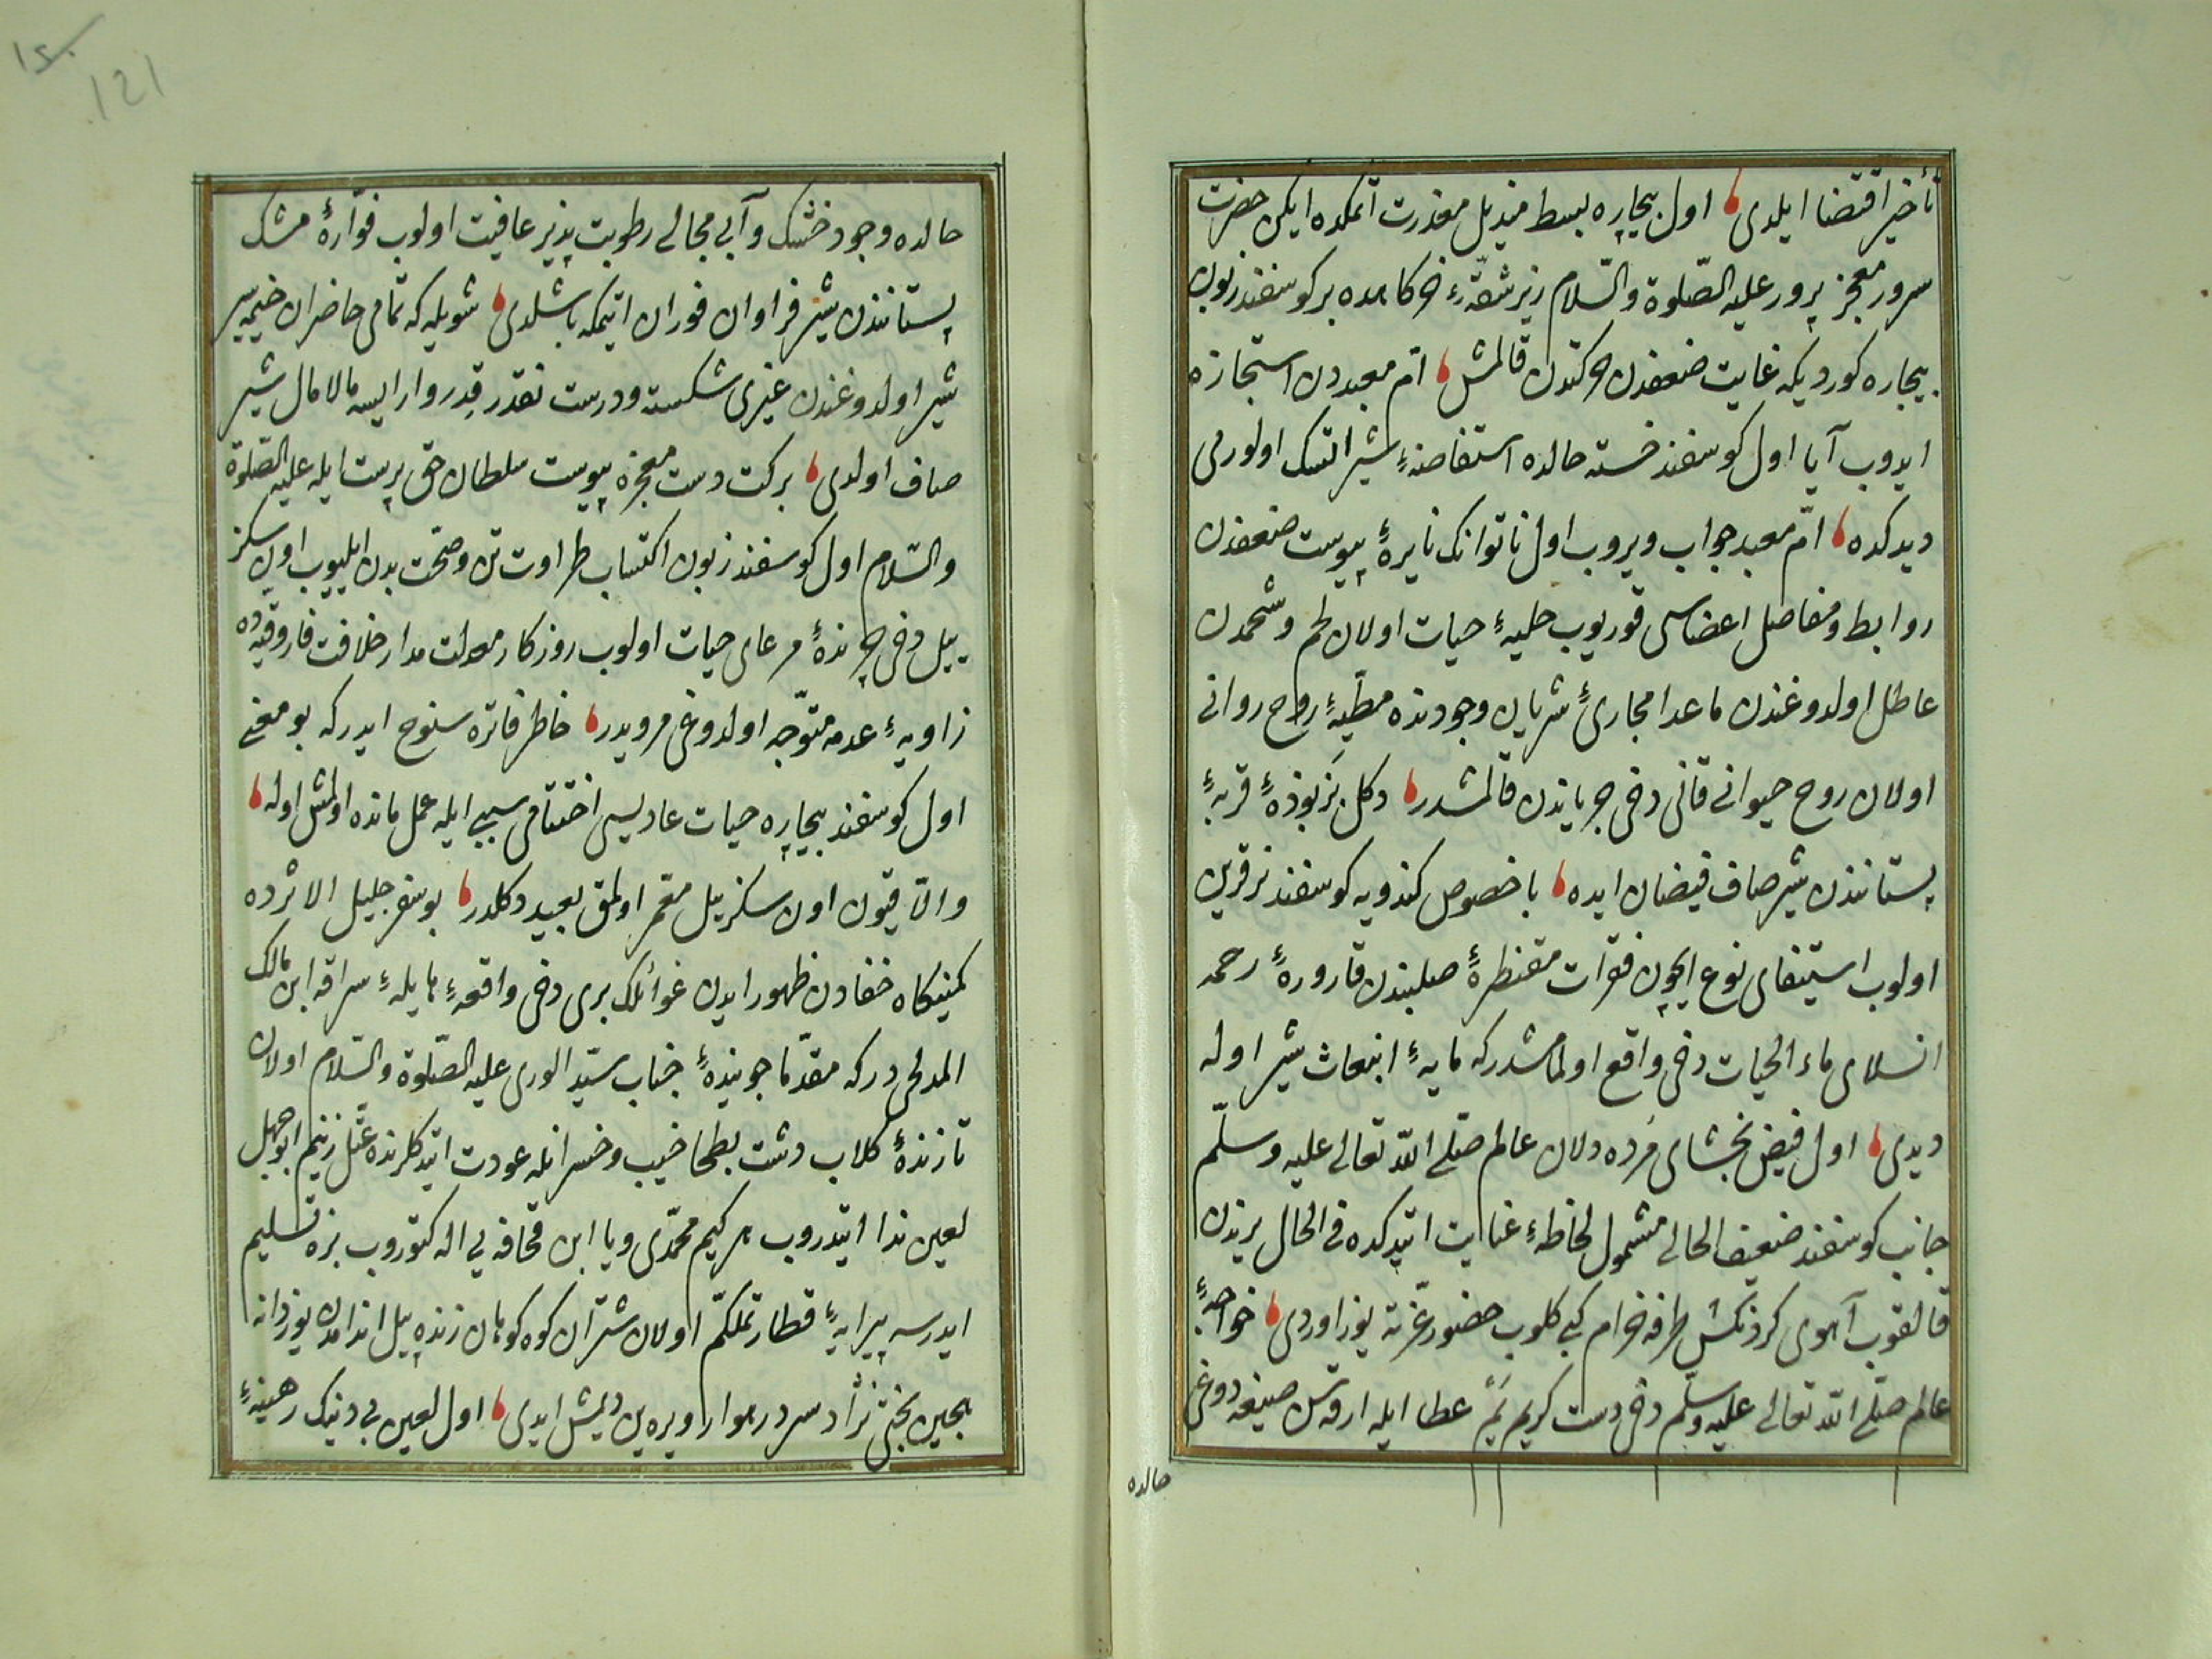 تأخیر اقتضا ایلدی، اول بیچاره بسط مندیل معذرت اتمکده ایکن حضرت
سرور معجز پرور علیه الصّلوة والسّلام زیر شقّهٔ خرکاهده بر کوسفند زبون
بیچاره کوردیکه غایت ضعفدن حرکتدن قالمش، امّ معبددن استجازه
ایدوب آیا اول کوسفند خسته حالده استفاضهٔ شیر اتسک اولورمی
دیدکده، امّ معبد جواب ویروب اول ناتوانک نایرهٔ پیوست ضعفدن
روابط ومفاصل اعضاسی قوریوب حلیهٔ حیات اولان لحم وشحمدن
عاطل اولدوغندن ماعدا مجاریٔ شریان وجودنده مطیّهٔ روح روانی
اولان روح حیوانی قانی دخی جریاندن قالمشدر، دکل بز بوزهٔ قربهٔ
پستانندن شیر صاف فیضان ایده، باخصوص کندویه کوسفند نر قرین
اولوب استیفای نوع ایچون فقرات مقنطرهٔ صلبندن قارورهٔ رحمه
انسلای ماء الحیات دخی واقع اولمامشدرکه مایهٔ انبعاث شیر اوله
دیدی، اول فیض بخشای مرده دلان عالم صلّی اللّٰه تعالی علیه وسلّم
جانب کوسفند ضعیف الحالی مشمول لحاظهٔ عنایت ایتدکده فی الحال یرندن
قالقوب آهوی کردنکش طرفه خرام کبی کلوب حضور عزّته یوز اوردی، خواجهٔ
عالم صلّی اللّٰه تعالی علیه وسلّم دخی دست کریم یم عطا ایله ارقه سن صیغه دوغی
حالده
۱۵۰
121
حالده وجود خشک وآبی مجالی رطوبت پذیر عافیت اولوب فوّارهٔ مشک
پستانندن شیر فراوان فوران ایتمکه باشلدی، شویله که تمامی حاضران خیمه سیر
شیر اولدوغندن غیری شکسته ودرست نقدر قدر وارایسه مالامال شیر
صاف اولدی، برکت دست معجزه پیوست سلطان حق پرست ایله علیه الصّلوة
والسّلام اول کوسفند زبون اکتساب طراوت تن وصحّت بدن ایلیوب اون سکز
ییل دخی چرندهٔ مرعای حیات اولوب روزکار معدلت مدار خلافت فاروقیه ده
زاویهٔ عدمه متوجّه اولدوغی مرویدر، خاطر فاتره سنوح ایدرکه بو معنی
اول کوسفند بیچاره حیات عادیسی اختتامی سببی ایله عمل مانده اولمش اوله،
والّا قیون اون سکز ییل معمّر اولمق بعید دکلدر، بو سفر جلیل الاثرده
کمینکاه خفادن ظهور ایدن غوائلک بری دخی واقعهٔ هایلهٔ سراقه ابن مالک
المدلجی درکه مقدّما جویندهٔ جناب سیّد الوری علیه الصّلوة والسّلام اولان
تازندهٔ کلاب دشت بطحا خیب وخسرانله عودت ایتدکلرنده عتلّ زنیم ابوجهل
لعین ندا ایتدروب هر کیم محمّدی ویا ابن قحافه یی اله کتوروب بزه تسلیم
ایدرسه پیرایهٔ قطار تملکّم اولان شتران کوه کوهان زنده پیل اندامدن یوز دانه
هجین بختی نژاد سرد رهوار ویره ین دیمش ایدی، اول لعین بی دینک رهینهٔ